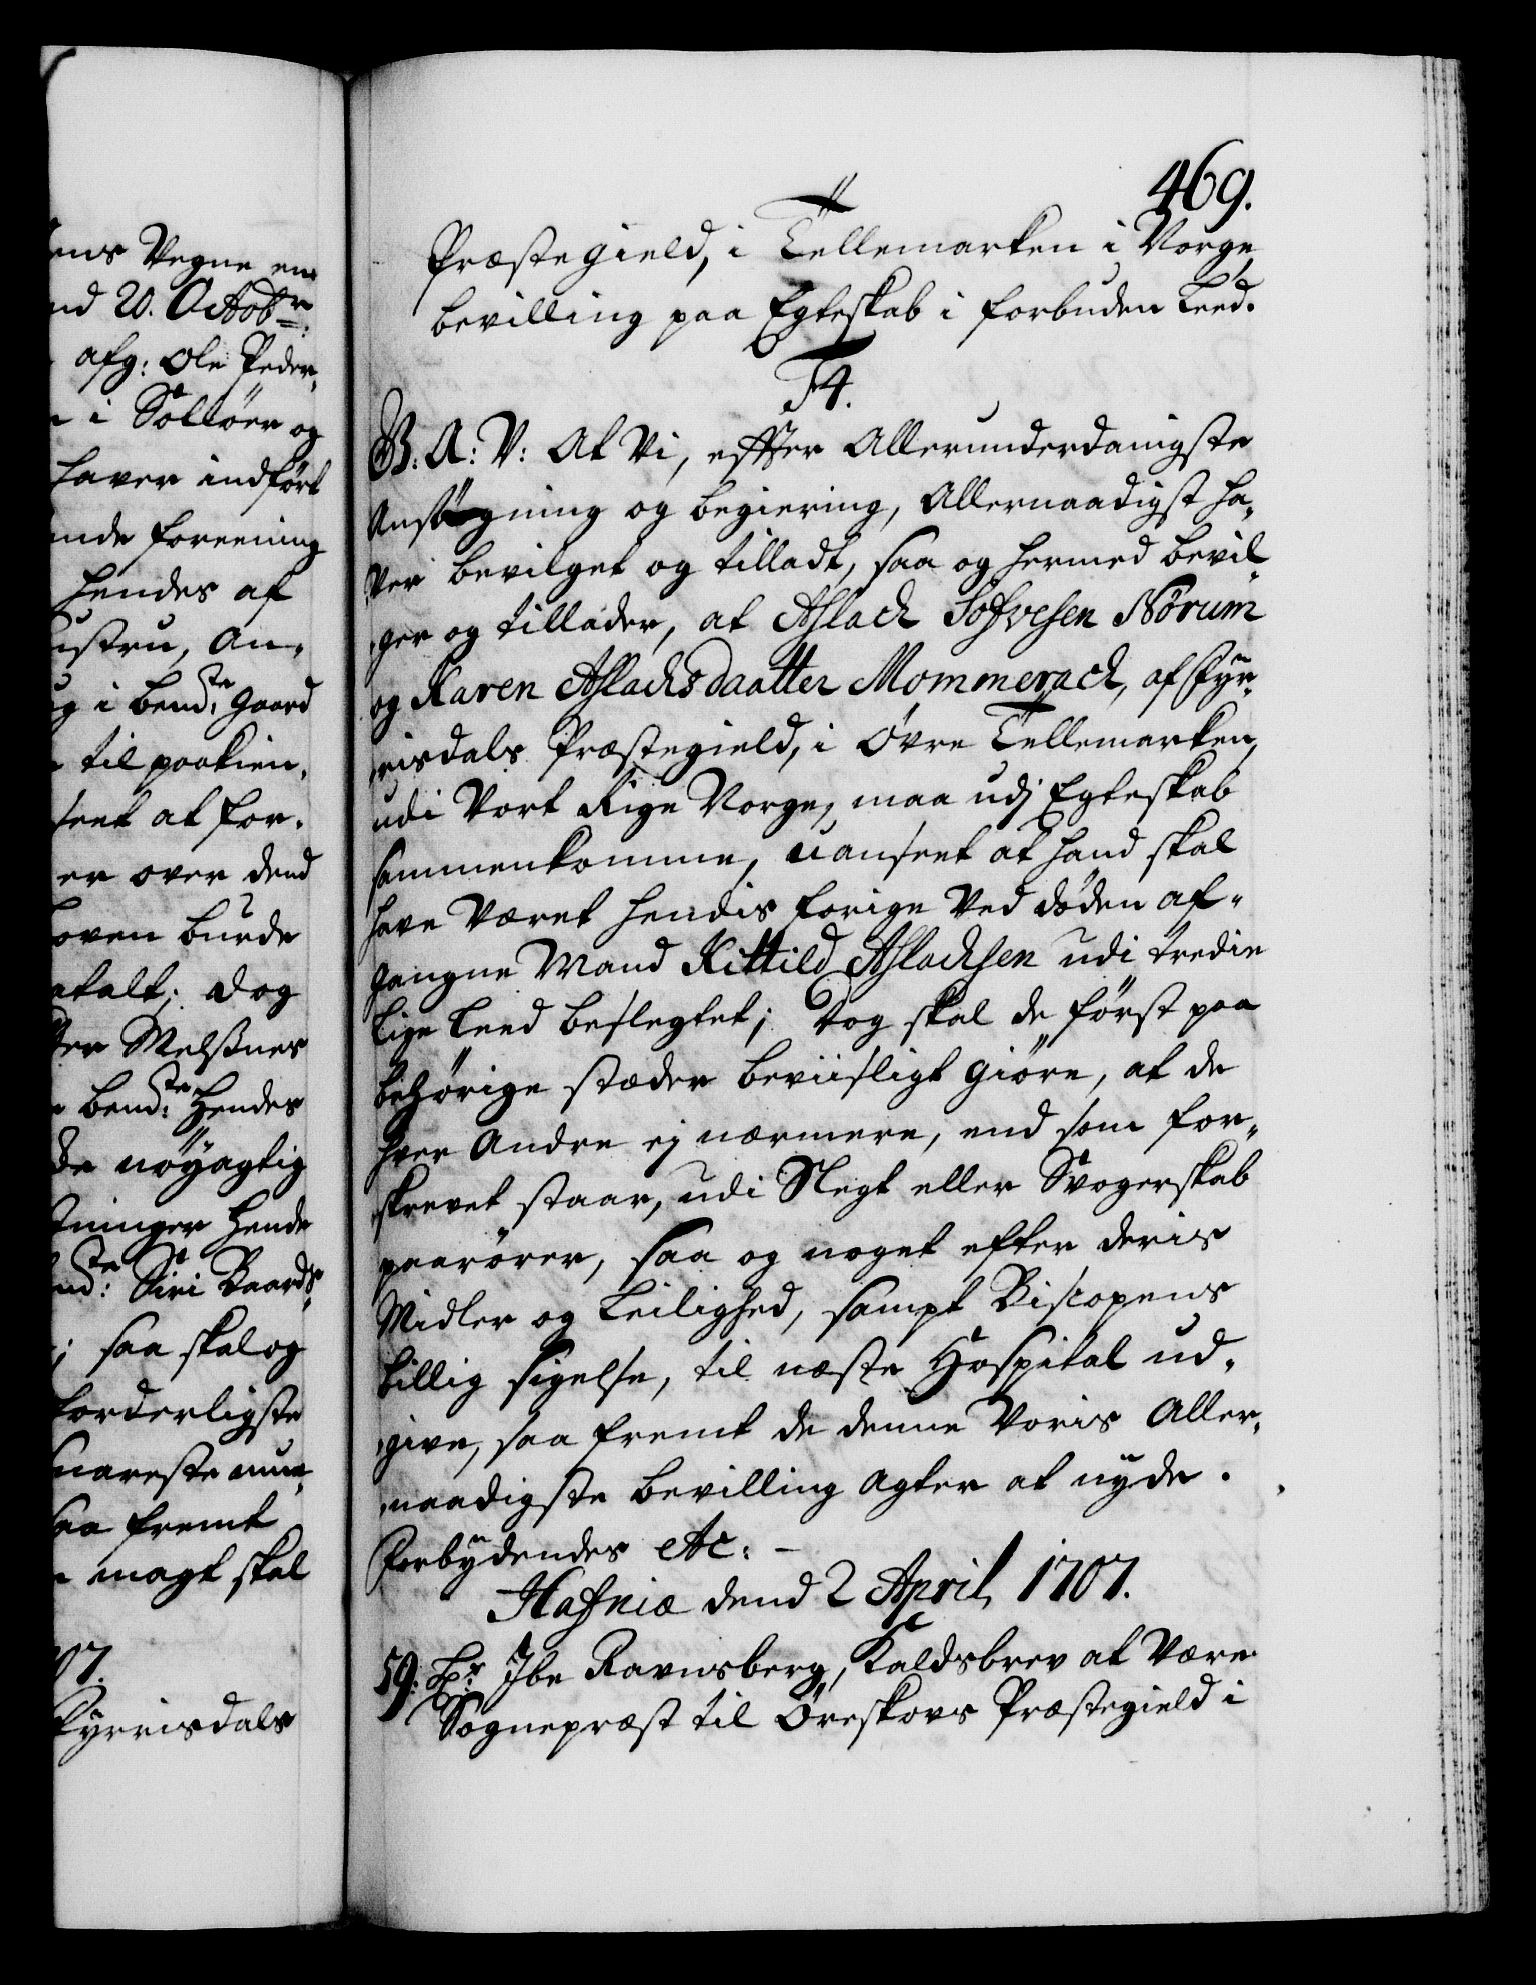 ens Vegne en
nd 20. Octobr:
afg: Ole Peder,
i Solloer og
haver indført
ende foreening
hendes af
ustru, An,
g i bend.te Gaard
til paakien,
seet at for,
er over dend
oven burde
etalt; dog
er Melsnes
bend.te Hendes
de nøyagtig
tninger Hende
nd:te Siri Baards,
; saa skal og
forderligste
nareste nu
saa fremt
magt skal
07.
Fyrrisdals
469.
Præstegield, i Tellemarken i Norge
bevilling paa Egteskab i forbuden Leed.
F4.
G: A: V: At Vi, effter Allerunderdanigste
Ansøgning og begiering, Allernaadigst ha,
ver bevilget og tilladt, saa og hermed bevil,
ger og tillader, at Aslach Sofvesen Nørum
og Karen Aslachsdaatter Mommerach, af Fyr,
risdals Præstegield, i Øvre Tellemarken,
udi Vort Rige Norge, maa udj Egteskab
sammenkomme, uanseet at hand skal
have været hendis forige ved døden af-
gangne Mand Kittild Aslachsen udi tredie
lige Leed beslegtet; dog skal de først paa
behørige stæder beviisligt giøre, at de
hver andre ej nærmere, end som for,
skrevet staar, udi Slegt eller Svogerskab
paarører, saa og noget efter deris
Midler og Leilighed, sampt Biscopens
billig sigelse, til næste Hospital ud,
give, saa fremt de denne Voris Aller,
naadigste bevilling agter at nyde.
Forbydendes etc: –
Hafniæ dend 2 April 1707.
59: Hr Ibe Ravnsberg, Kaldsbrev at være
Sognepræst til Øreskovs Præstegield i